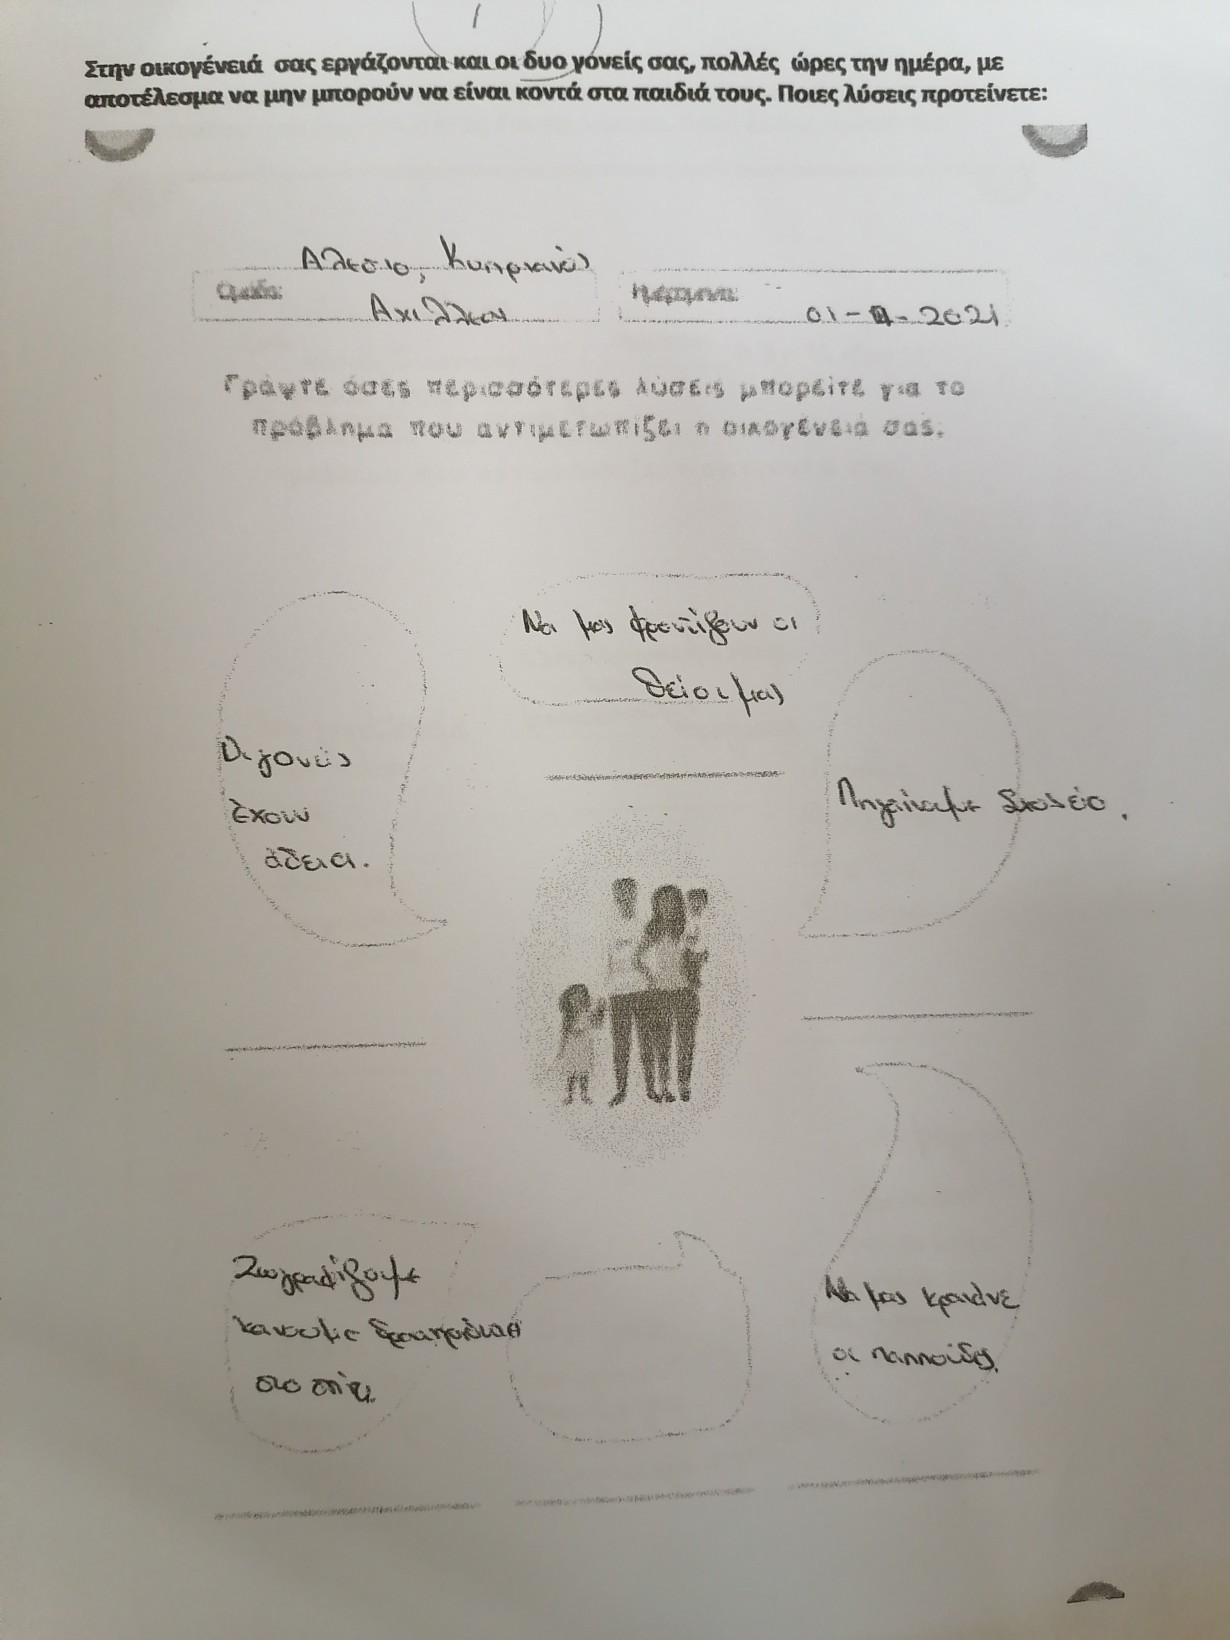 Στην οικογένειά σας εργάζονται και οι δυο γονείς σας, πολλές ώρες την ημέρα, με
αποτέλεσμα να μην μπορούν να είναι κοντά στα παιδιά τους. Ποιες λύσεις προτείνετε:
Αλεσιο, Κυπριανός
Ομάδα: Αχιλλέας
Ημερομηνία: 01-11-2021
Γράψτε όσες περισσότερες λύσεις μπορείτε για το
πρόβλημα που αντιμετωπίζει η οικογένειά σας.
Να μας φροντίζουν οι
θείοι μας
Οι γονείς
έχουν
άδεια.
Πηγαίναμε σχολείο.
Ζωγραφίζουμε
κάνουμε
στο σπίτι
Να μας κρατάνε
οι παππούδες.